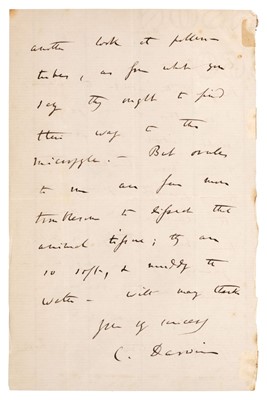 another look at pollen-
tubes, as from what you
say they ought to find
their way to the
micropyle. — But ovules
to me are far more
troublesome to dissect than
animal tissue; they are
so soft, & muddy the
water — With many thanks
Yours very sincerely
C. Darwin